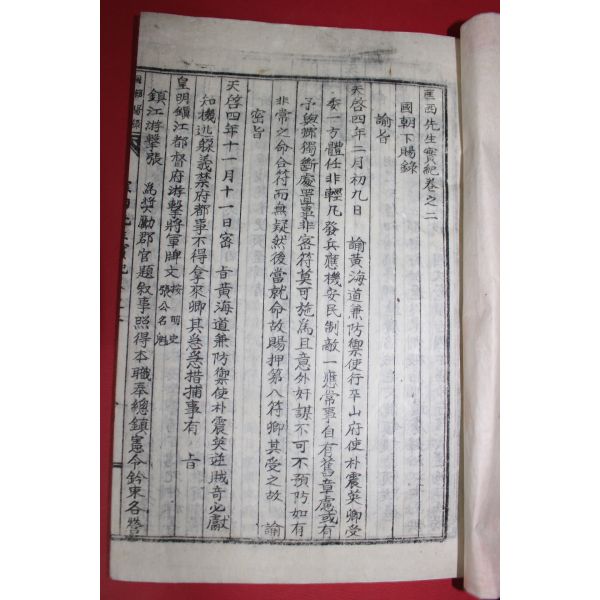 匡西先生實紀卷之二
國朝下賜錄
諭旨
天啓四年二月初九日 諭黃海道兼防禦使行平山府使朴震英卿受
委一方體任非輕凡發兵應機安民制敵一應常事自有舊章慮或有
予與卿獨斷處置事非密符莫可施爲且意外奸謀不可不預防如有
非常之命合符而無疑然後當就命故賜押第八符卿其受之故 諭
密旨
天啓四年十一月十一日密 旨黃海道兼防禦使朴震英逆賊奇必獻
知機逃躱義禁府都事不得拿來卿其急急措捕事有 旨
皇明鎭江都督府游擊將軍牌文 按明史張公名魁
鎭江游擊張 爲奬勵郡官題叙事照得本職奉總鎭憲令鈐束各營